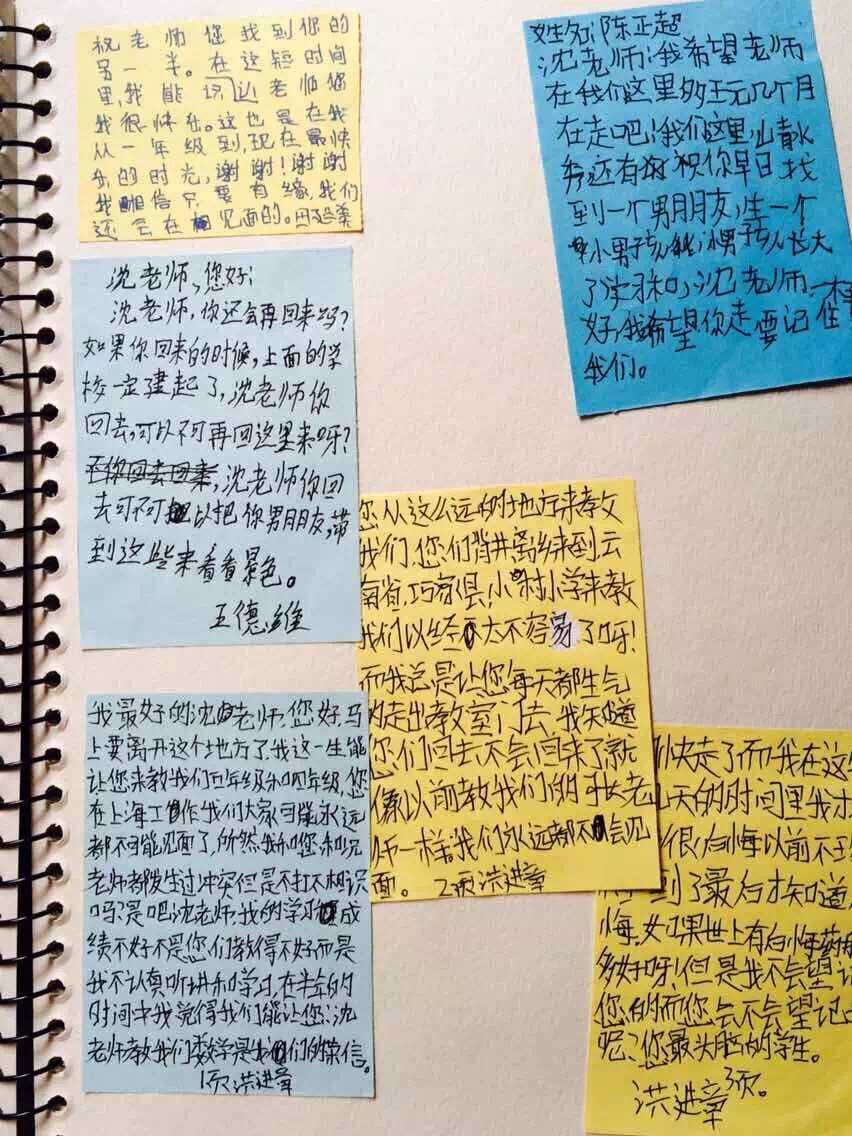 祝老师您找到你的
另一半。在这短时间
里,我能识边老师您
我很快乐。这也是在我
从一年级到,现在最快
乐的时光,谢谢!谢谢
我相信只要有缘,我们
还会在相见面的。
沈老师,您好:
沈老师,你还会再回来吗?
如果你回来的时候,上面的学
校一定建起了,沈老师你
回去,可以不可再回这里来呀?
沈老师你回
去可不可以把你男朋友,带
到这些来看看景色。
王德维
我最好的沈老师,您好,马
上要离开这个地方了,我这一生能
让您来教我们五年级和四年级,您
在上海工作我们大家可能永远
都不可能见面了,所然我和您和况
老师都发生过冲突但是不打不相识
吗?是吧沈老师,我的学习成
绩不好不是您们教得不好而是
我不认真听讲和学习,在半年的
时间中我觉得我们能让您:沈
老师教我们数学是我们的荣信。
1页洪进章
姓名:陈正超
沈老师:我希望老师
在我们这里多玩几个月
在走吧!我们这里,山青水
秀还有 祝你早日找
到一个男朋友,生一个
小男孩 小男孩长大
了 沈老师,一样
好,我希望你走要记住
我们。
您从这么远的地方来教
我们,您们背井离乡来到,云
南省,巧家县,小村小学来教
我们以经太不容易了呀!
而我总是让您每天都生气
的走出教室门去,我知道
您们回去,不会回来了就
像以前教我们的 老
师一样,我们永远都不会见
面。 2页洪进章
快走了而我在这
天的时间里我才
很后悔以前不
到了最后才知道,
悔,如果世上有后悔药
多好呀!但是我不会望记
您的而您会不会望记
呢?您最头脑的学生。
洪进章3页。